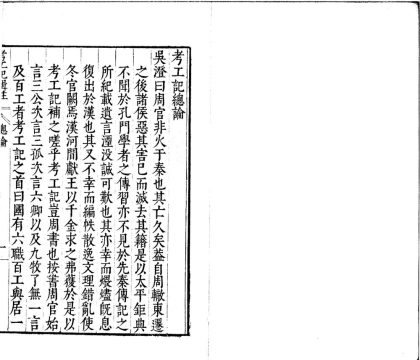 考工記總論
吳澄曰周官非火于秦也其亡久矣蓋自周轍東遷
之後諸侯惡其害巳而滅去其籍是以太平鉅典
不聞於孔門學者之傳習亦不見於先秦傳記之
所紀載遺言湮没誠可歎也其亦幸而煨燼旣息
復出於漢也其又不幸而編帙散逸文理錯亂使
冬官闕焉漢河間獻王以千金求之弗獲於是以
考工記補之嗟乎考工記豈周書也按周官始
言三公次言三孤次言六卿以及九牧了無一言
及百工者考工記之首曰國有六職百工與居一
總論